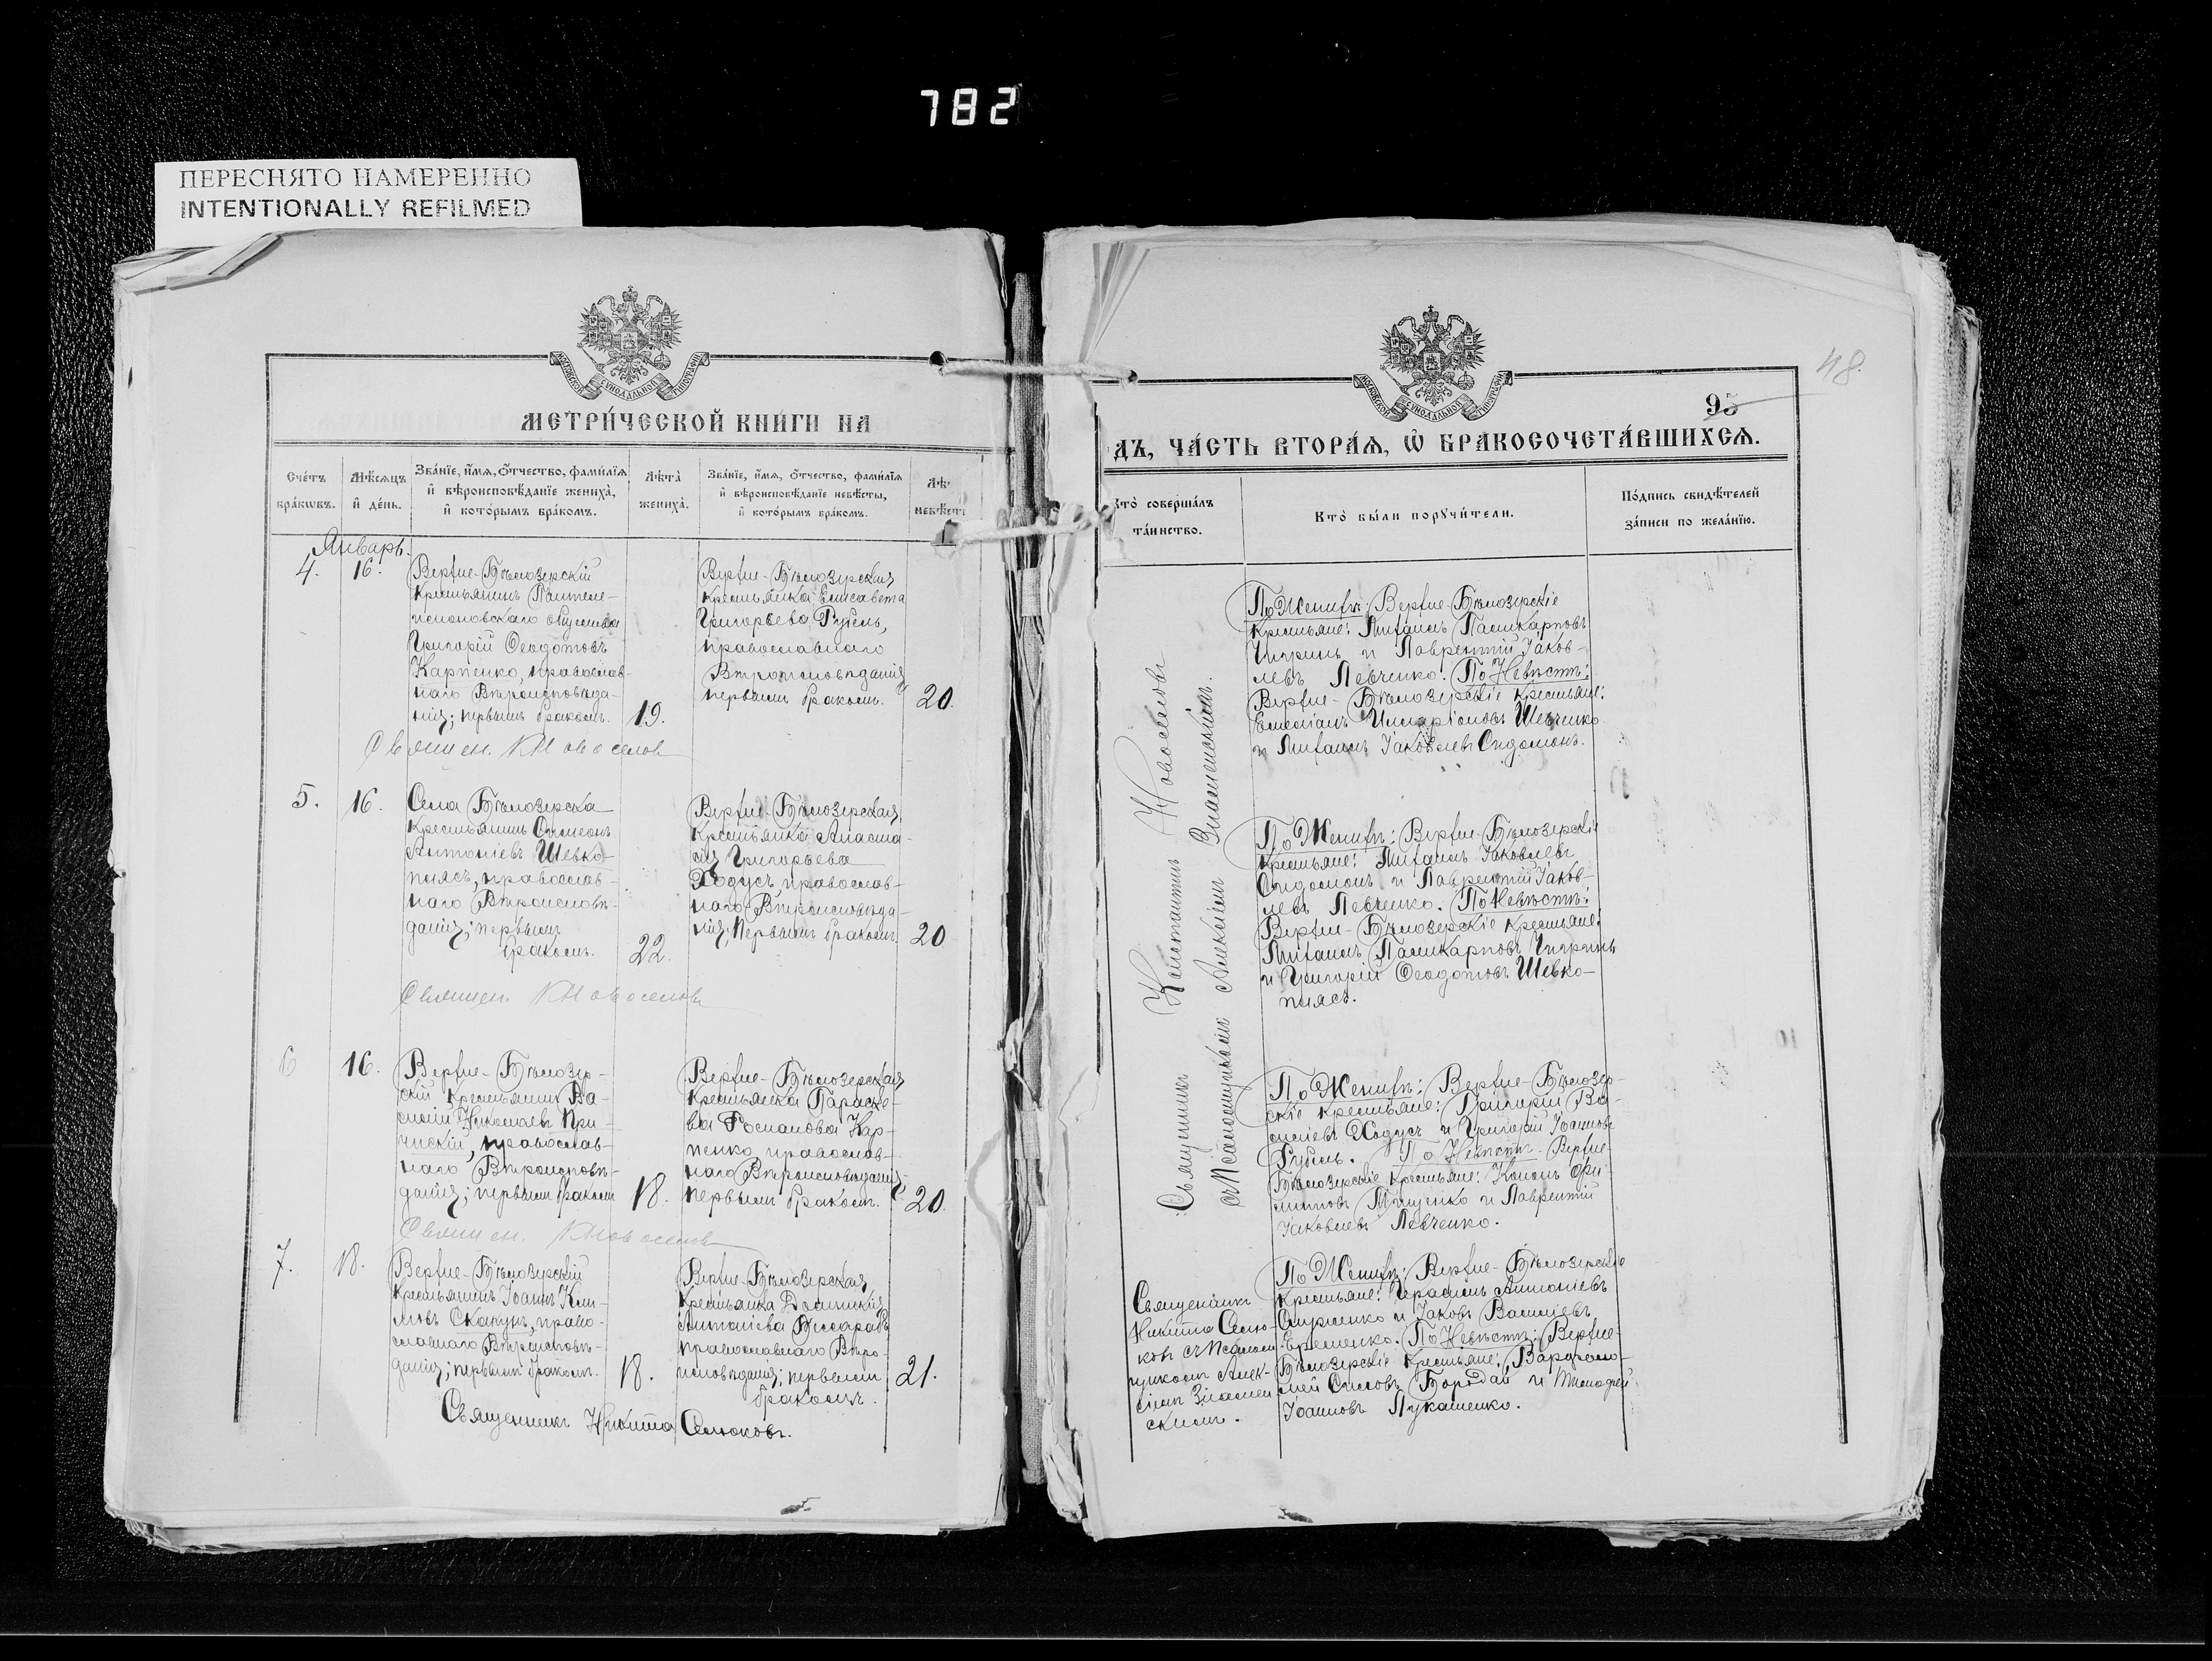 782
ПЕРЕСНЯТО НАМЕРЕННО
INTENTIONALLY REFILMED
МОСКОВСКОЙ СѴНОДАЛЬНОЙ ТИПОГРАФІИ
МЕТРИ́ЧЕСКОЙ КНИ́ГИ НА
Сче́тъ
бра́кωвъ.
Мѣ́сяцъ
и҆ де́нь.
Зва́нїе, и҆́мѧ, ѻ҆́тчество, фами́лїѧ
и҆ вѣроисповѣ́данїе жениха̀,
и҆ кото́рымъ бра́комъ.
Лѣ́та̀
жениха̀.
Зва́нїе, и҆́мѧ, ѻ҆́тчество, фами́лїѧ
и҆ вѣроисповѣ́данїе невѣ́сты,
и҆ кото́рымъ бра́комъ.
Лѣ
невѣ́сты
Январь.
4.
16.
Верхне-Бѣлозерскій
крестьянинъ Пантеле-
Григорій Ѳеодотовъ
Карпенко, православ-
наго Вѣроисповѣда-
нія; первымъ бракомъ.
19.
Верхне-Бѣлозерская
крестьянка Елисавета
Григорьева Рубель,
православнаго
Вѣроисповѣданія
первымъ бракомъ.
20.
Священ. К Новоселов
5.
16.
Села Бѣлозерка
крестьянинъ Симеонъ
Антоніевъ Шевко-
плясъ, православ-
наго Вѣроисповѣ-
данія; первымъ
бракомъ.
22.
Верхне-Бѣлозерская
крестьянка Анаста-
сія Григорьева
Ходусъ, православ-
наго Вѣроисповѣда-
нія; Первымъ бракомъ
20
Священ. К Новоселовъ
6
16.
Верхне-Бѣлозер-
скій крестьянинъ Ва-
силій Николаевъ При-
православ-
наго Вѣроисповѣ-
данія; первымъ бракомъ
18.
Верхне-Бѣлозерская
крестьянка Параске-
ва Романова Кар-
пенко, православ-
наго Вѣроисповѣданія;
первымъ бракомъ.
20.
Священ. К Новоселов
7.
18.
Верхне-Бѣлозерскій
крестьянинъ Іоаннъ Кли-
мовъ Скакунъ, право-
славнаго Вѣроисповѣ-
данія; первымъ бракомъ.
18.
Верхне-Бѣлозерская
крестьянка Домникія
Антоніева
православнаго Вѣро-
исповѣданія; первымъ
бракомъ.
21.
Священникъ Никита Селюковъ.
48.
МОСКОВСКОЙ СѴНОДАЛЬНОЙ ТИПОГРАФІИ
95
ДЪ, ЧА́СТЬ ВТОРА́Ѧ, Ѡ҆ БРАКОСОЧЕТА́ВШИХСѦ.
Кто̀ соверша́лъ
та́инство.
Кто̀ бы́ли порꙋчи́тели.
По́дпись свидѣ́телей
за́писи по жела́нїю.
Священникъ Константинъ Новоселовъ
съ Псаломщикомъ Алексіемъ Знаменскимъ.
По Женихѣ: Верхне-Бѣлозерскіе
крестьяне: Михаилъ Поликарповъ
Чигринъ и Лаврентій Іаков-
левъ Левченко. По Невѣстѣ:
Верхне-Бѣлозерскіе крестьяне:
Емеліанъ Иларіоновъ Шевченко
и Михаилъ Іаковлевъ Сидомонъ.
По Женихѣ: Верхне-Бѣлозерскіе
крестьяне: Михаилъ Іаковлевъ
Сидомонъ и Лаврентій Іаков-
левъ Левченко. По Невѣстѣ:
Верхне-Бѣлозерскіе крестьяне:
Михаилъ Поликарповъ Чигринъ
и Григорій Ѳеодотовъ Шевко-
плясъ.
По Женихѣ: Верхне-Бѣлозер-
скіе крестьяне: Григорій Ва-
силіевъ Ходусъ и Григорій Іоанновъ
Рубель. По Невѣстѣ Верхне-
Бѣлозерскіе крестьяне: Кононъ Фи-
липповъ и Лаврентій
Іаковлевъ Левченко.
Священникъ
Никита Селю-
ковъ съ Псалом-
щикомъ Алек-
сіемъ Знамен
скимъ.
По Женихѣ: Верхне-Бѣлозерскіе
крестьяне: Герасимъ Антоніевъ
и Іаковъ Василіевъ
Еременко. По Невѣстѣ: Верхне-
Бѣлозерскіе крестьяне: Варѳоло-
мей Бородай и Тимоѳей
Іоанновъ Лукашенко.